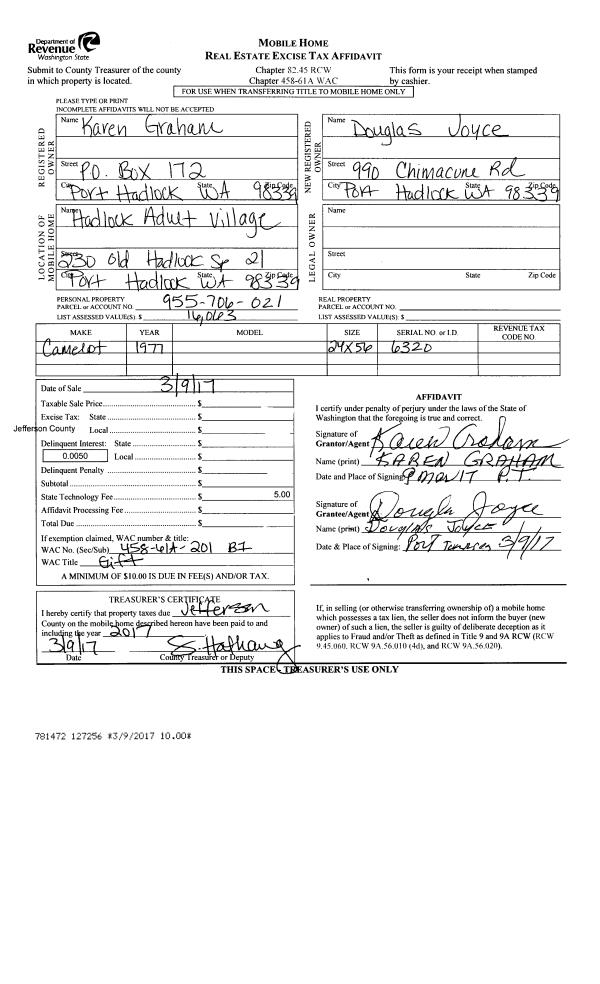 Department of
Revenue
Washington State
MOBILE HOME
REAL ESTATE EXCISE TAX AFFIDAVIT
Submit to County Treasurer of the county
in which property is located.
Chapter 82.45 RCW
Chapter 458-61A WAC
This form is your receipt when stamped
by cashier.
FOR USE WHEN TRANSFERRING TITLE TO MOBILE HOME ONLY
PLEASE TYPE OR PRINT
INCOMPLETE AFFIDAVITS WILL NOT BE ACCEPTED
REGISTERED OWNER
Name Karen Graham
Street P.O. Box 172
City Port Hadlock State WA Zip Code 98339
NEW REGISTERED OWNER
Name Douglas Joyce
Street 990 Chimacum Rd
City Port Hadlock State WA Zip Code 98339
LOCATION OF MOBILE HOME
Name Hadlock Adult Village
Street 230 Old Hadlock Sp 21
City Port Hadlock State WA Zip Code 98339
LEGAL OWNER
Name
Street
City State Zip Code
PERSONAL PROPERTY
PARCEL or ACCOUNT NO. 955-706-021
LIST ASSESSED VALUE(S) $ 16,063
REAL PROPERTY
PARCEL or ACCOUNT NO.
LIST ASSESSED VALUE(S) $
MAKE YEAR MODEL SIZE SERIAL NO. or I.D. REVENUE TAX CODE NO.
Camelot 1977 24X56 6320
Date of Sale 3/9/17
Taxable Sale Price $
Excise Tax: State $
Jefferson County Local $
Delinquent Interest: State $
0.0050 Local $
Delinquent Penalty $
Subtotal $
State Technology Fee $ 5.00
Affidavit Processing Fee $
Total Due $
If exemption claimed, WAC number & title:
WAC No. (Sec/Sub) 458-61A-201 B1
WAC Title Gift
A MINIMUM OF $10.00 IS DUE IN FEE(S) AND/OR TAX.
AFFIDAVIT
I certify under penalty of perjury under the laws of the State of
Washington that the foregoing is true and correct.
Signature of
Grantor/Agent Karen Graham
Name (print) KAREN GRAHAM
Date and Place of Signing 9 Mar 17 P.T.
Signature of
Grantee/Agent Douglas Joyce
Name (print) Douglas Joyce
Date & Place of Signing: Port 3/9/17
TREASURER'S CERTIFICATE
I hereby certify that property taxes due Jefferson
County on the mobile home described hereon have been paid to and
including the year 2017
3/9/17 S. Hathaway
Date County Treasurer or Deputy
If, in selling (or otherwise transferring ownership of) a mobile home
which possesses a tax lien, the seller does not inform the buyer (new
owner) of such a lien, the seller is guilty of deliberate deception as it
applies to Fraud and/or Theft as defined in Title 9 and 9A RCW (RCW
9.45.060, RCW 9A.56.010 (4d), and RCW 9A.56.020).
THIS SPACE - TREASURER'S USE ONLY
781472 127256 *3/9/2017 10.00*